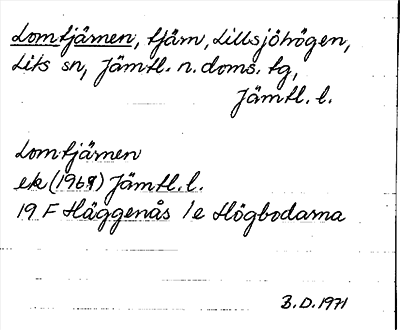 Lomtjärnen, tjärn, Lillsjöhögen,
Lits sn, Jämtl. n. doms. tg,
Jämtl. l.
Lomtjärnen
ek (1969) Jämtl. l.
19 F Häggenås 1e Högbodarna
B.D. 1971